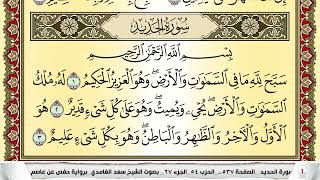 سُورَةُ الحَدِيدِ
بِسْمِ ٱللَّهِ ٱلرَّحْمَٰنِ ٱلرَّحِيمِ
سَبَّحَ لِلَّهِ مَا فِى ٱلسَّمَٰوَٰتِ وَٱلْأَرْضِ وَهُوَ ٱلْعَزِيزُ ٱلْحَكِيمُ ١ لَهُۥ مُلْكُ
ٱلسَّمَٰوَٰتِ وَٱلْأَرْضِ يُحْىِۦ وَيُمِيتُ وَهُوَ عَلَىٰ كُلِّ شَىْءٍ قَدِيرٌ ٢ هُوَ
ٱلْأَوَّلُ وَٱلْـَٔاخِرُ وَٱلظَّٰهِرُ وَٱلْبَاطِنُ وَهُوَ بِكُلِّ شَىْءٍ عَلِيمٌ ٣
1 سورة الحديد الصفحة ٥٣٧ الحزب ٥٤ الجزء ٢٧ بصوت الشيخ سعد الغامدي برواية حفص عن عاصم